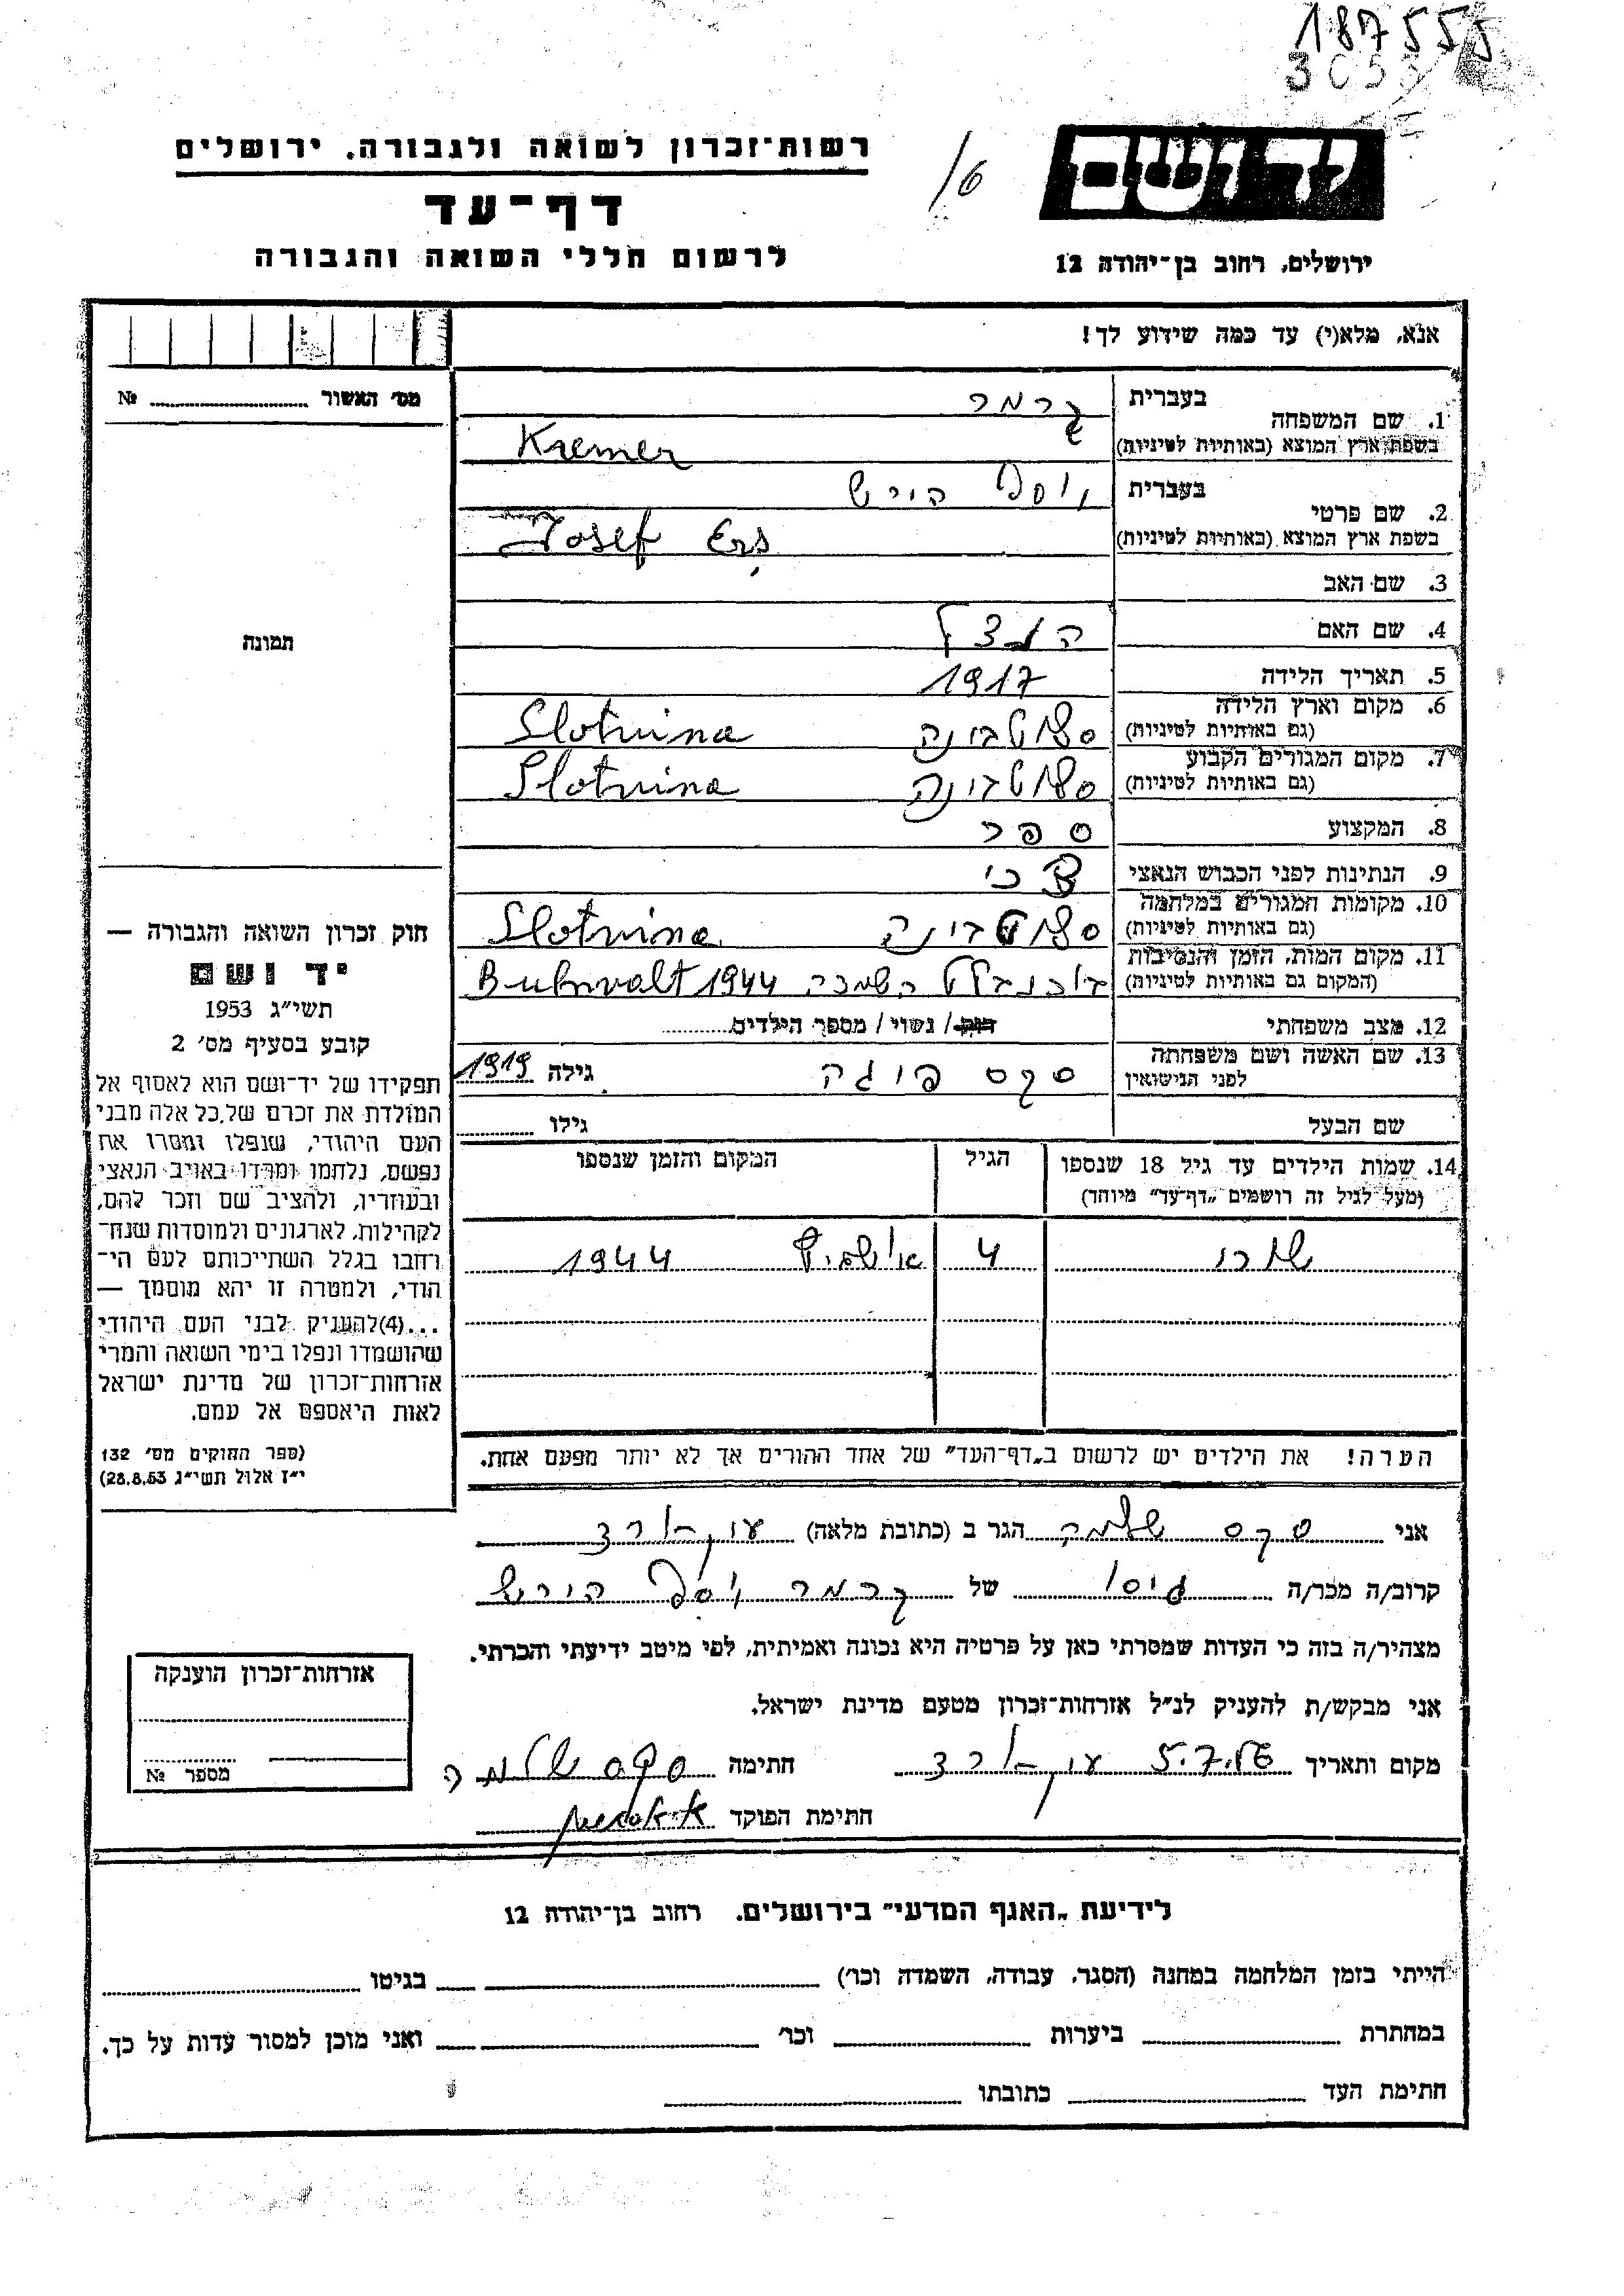 187555
רשות־זכרון לשואה ולגבורה, ירושלים
16
דף־עד
לרשום חללי השואה והגבורה
ירושלים, רחוב בן־יהודה 12
אנא, מלא(י) עד כמה שידוע לך!
מס׳ האשור № 
1. שם המשפחה בעברית קרמר
בשפת ארץ המוצא (באותיות לטיניות) Kremer
2. שם פרטי בעברית יוסף הירש
בשפת ארץ המוצא (באותיות לטיניות) Josef Erş
3. שם האב
4. שם האם
תמונה
5. תאריך הלידה 1917
6. מקום וארץ הלידה (גם באותיות לטיניות) סלוטבינה Slotvina
7. מקום המגורים הקבוע (גם באותיות לטיניות) סלוטבינה Slotvina
8. המקצוע ספר
9. הנתינות לפני הכבוש הנאצי צ׳כי
10. מקומות המגורים במלחמה (גם באותיות לטיניות) סלוטבינה Slotvina
11. מקום המות, הזמן והנסיבות (המקום גם באותיות לטיניות) בוכנבלט השמדה 1944 Buhnvalt
12. מצב משפחתי רווק / נשוי / מספר הילדים
13. שם האשה ושם משפחתה לפני הנישואין סקס פיגה גילה 1919
שם הבעל גילו
14. שמות הילדים עד גיל 18 שנספו (מעל לגיל זה רושמים „דף־עד״ מיוחד) הגיל המקום והזמן שנספו
שרי 4 אושויץ 1944
הערה! את הילדים יש לרשום ב„דף־העד״ של אחד ההורים אך לא יותר מפעם אחת.
חוק זכרון השואה והגבורה —
יד ושם
תשי״ג 1953
קובע בסעיף מס׳ 2
תפקידו של יד־ושם הוא לאסוף אל
המולדת את זכרם של כל אלה מבני
העם היהודי, שנפלו ומסרו את
נפשם, נלחמו ומרדו באויב הנאצי
ובעוזריו, ולהציב שם וזכר להם,
לקהילות, לארגונים ולמוסדות שנח־
רחבו בגלל השתייכותם לעם הי־
הודי, ולמטרה זו יהא מוסמך —
...(4)להעניק לבני העם היהודי
שהושמדו ונפלו בימי השואה והמרי
אזרחות־זכרון של מדינת ישראל
לאות היאספם אל עמם.
(ספר החוקים מס׳ 132
י״ז אלול תשי״ג 28.8.53)
אני סקס שלמה הגר ב (כתובת מלאה)
קרוב/ה מכר/ה גיסו של קרמר יוסף הירש
מצהיר/ה בזה כי העדות שמסרתי כאן על פרטיה היא נכונה ואמיתית, לפי מיטב ידיעתי והכרתי.
אני מבקש/ת להעניק לנ״ל אזרחות־זכרון מטעם מדינת ישראל.
מקום ותאריך 5.7.56 חתימה סקס שלמה
חתימת הפוקד
אזרחות־זכרון הוענקה
מספר №
לידיעת „האגף המדעי״ בירושלים, רחוב בן־יהודה 12
הייתי בזמן המלחמה במחנה (הסגר, עבודה, השמדה וכו׳) בגיטו
במחתרת ביערות וכו׳ ואני מוכן למסור עדות על כך.
חתימת העד כתובתו